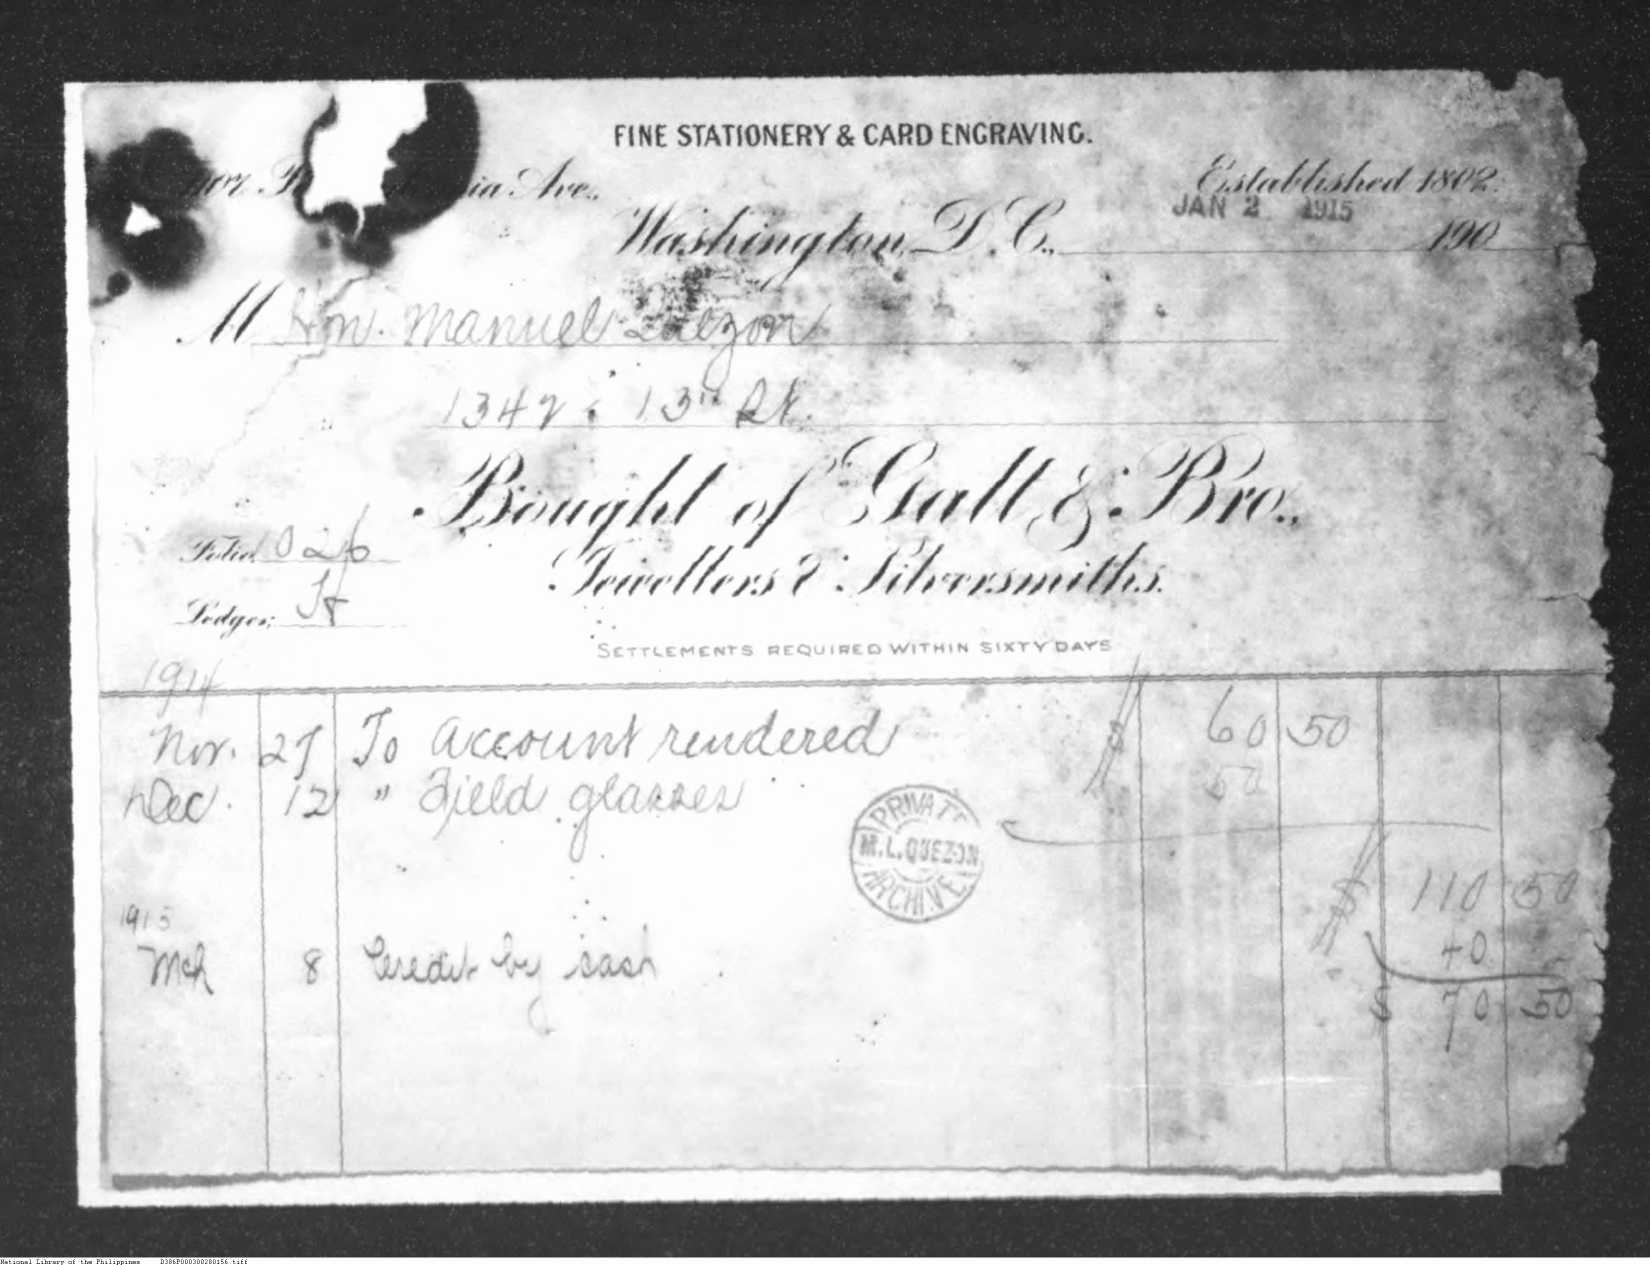 FINE STATIONERY & CARD ENGRAVING.
Ave.,
Established 1802.
JAN 2 1915
Washington, D.C., 190
M Hon. Manuel Quezon
1342 - 13th St.
Bought of Galt & Bro.,
Jewellers & Silversmiths.
Folio 026
Ledger
SETTLEMENTS REQUIRED WITHIN SIXTY DAYS
1914
Nov. 27 To account rendered $ 60 50
Dec. 12 " Field glasses 50
PRIVATE
M.L.QUEZON
ARCHIVE
$ 110 50
1915
Mch 8 Credit by cash 40
$ 70 50
National Library of the Philippines D386P000300280156.tiff